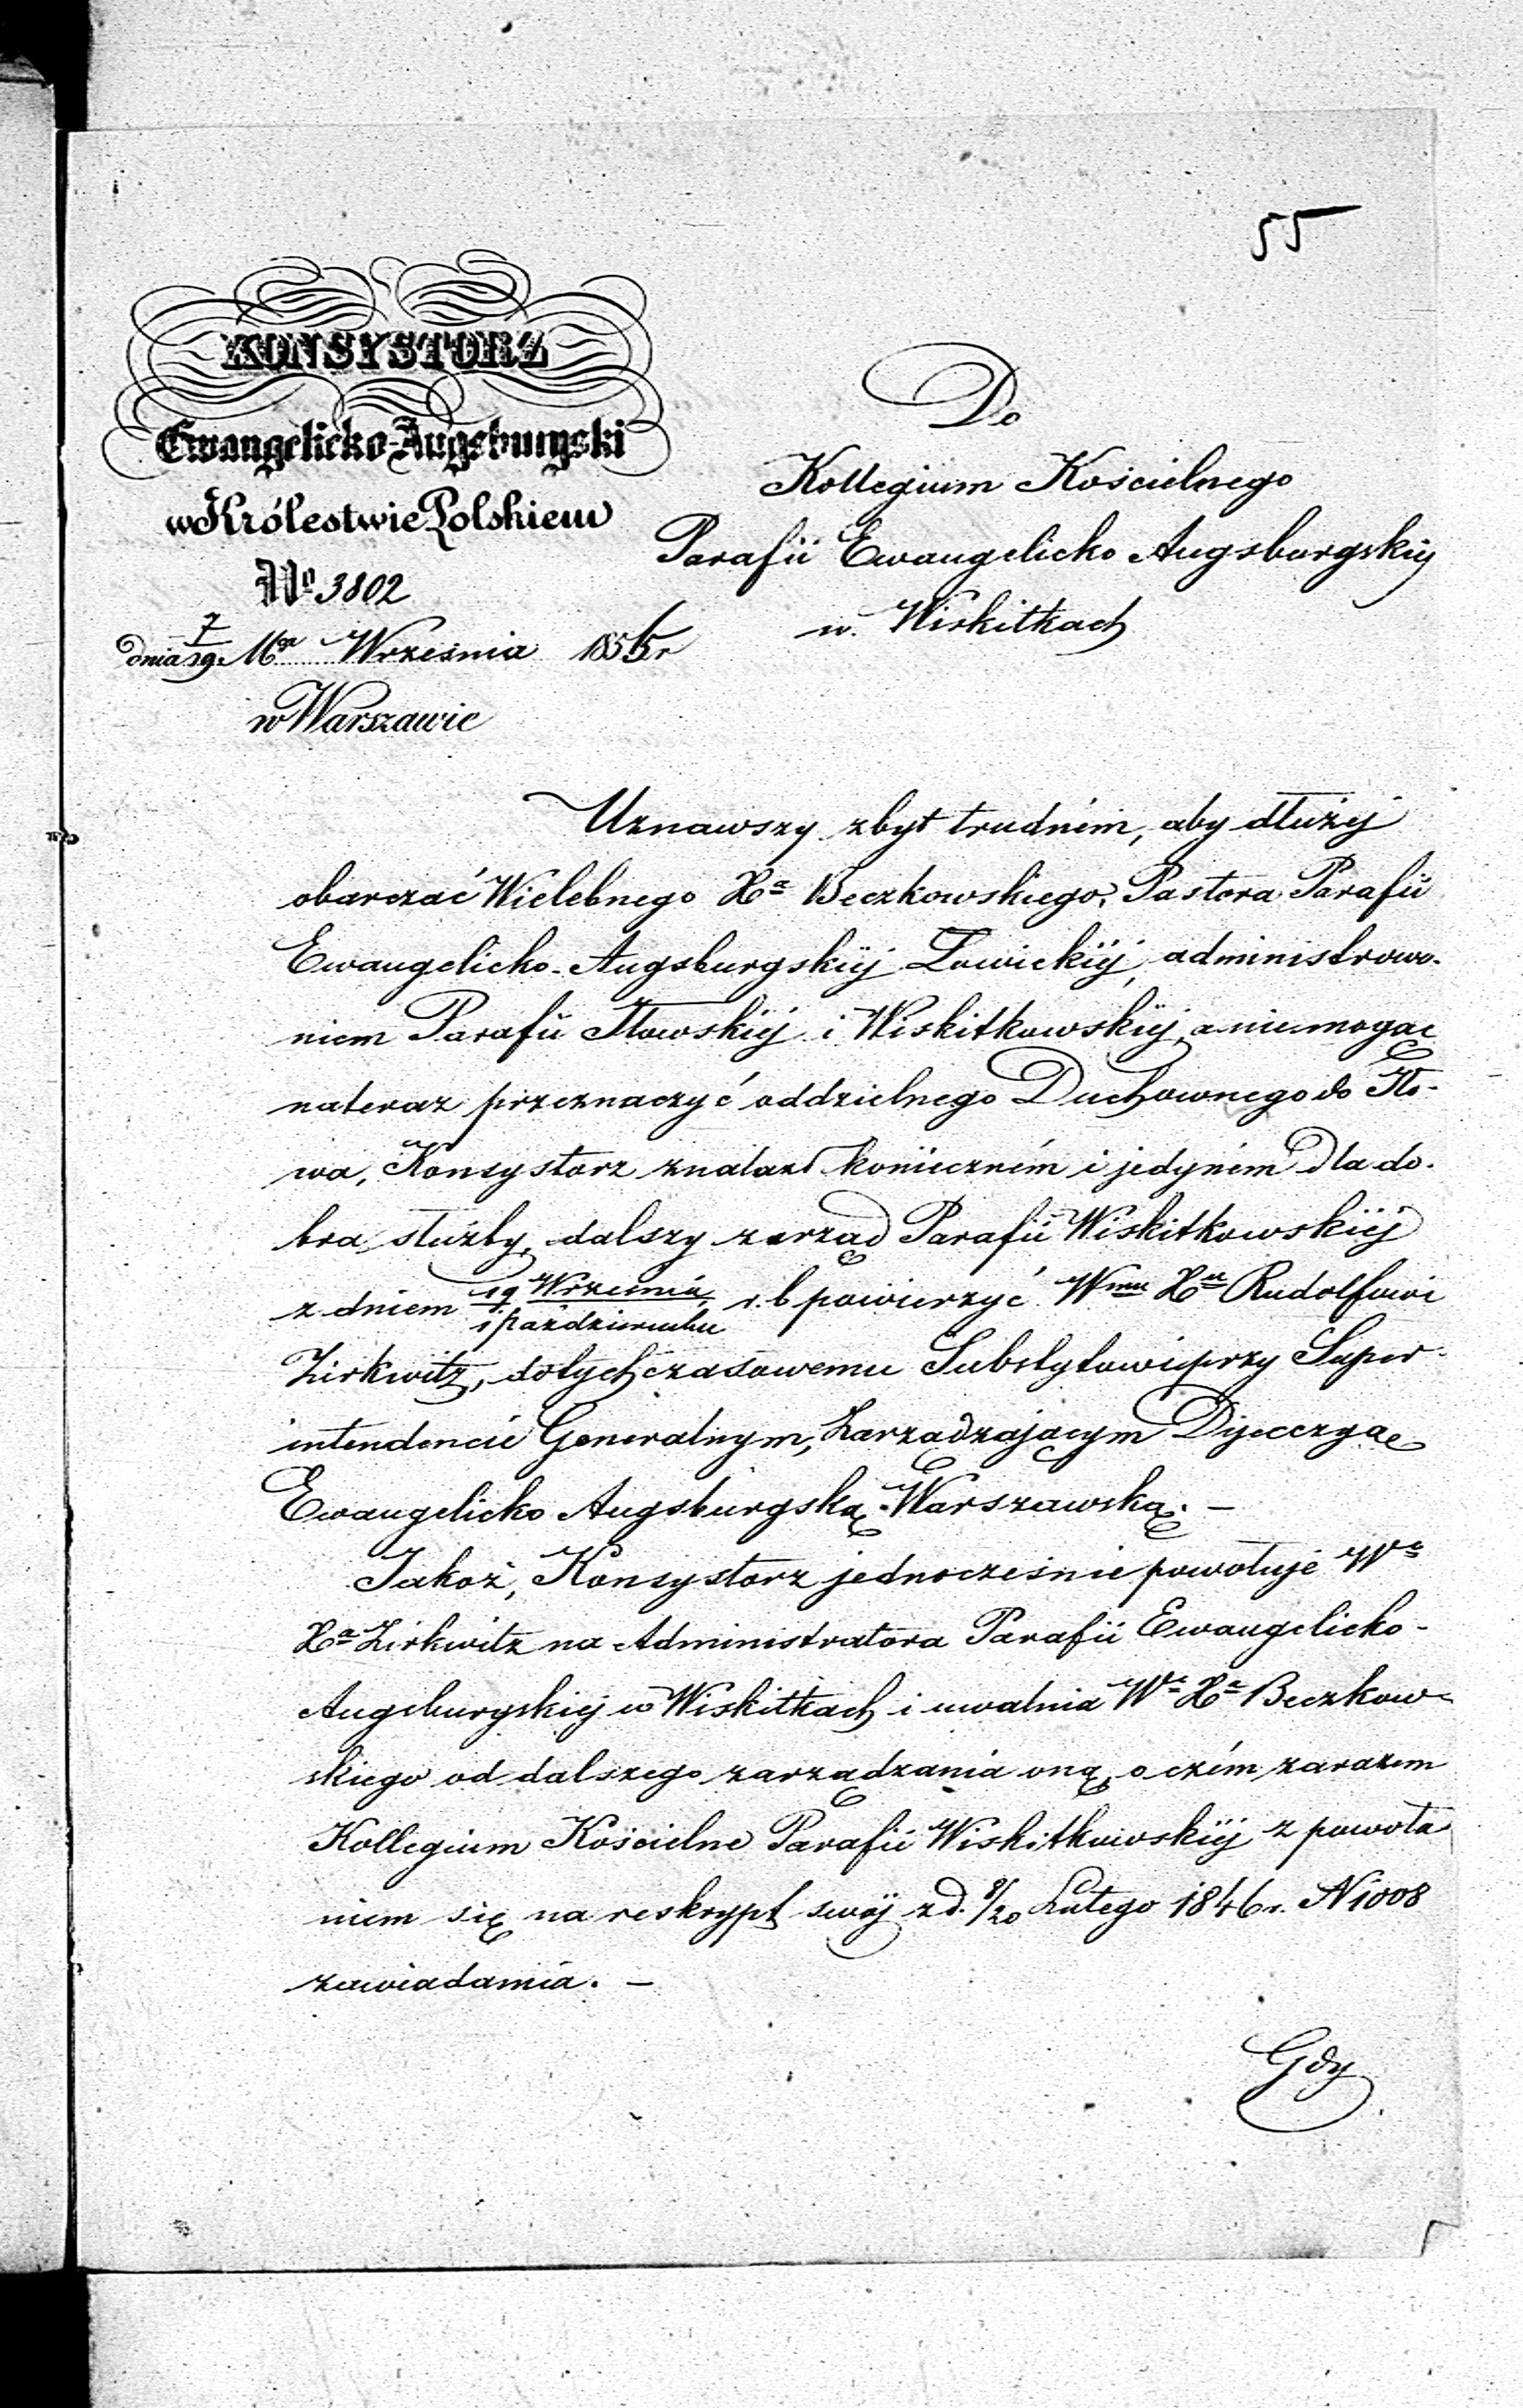 55
KONSYSTORZ
Ewangelicko-Augsburgski
w Królestwie Polskiem
No 3802
dnia 7/19 Mca Września 1855 r
w Warszawie
Do
Kollegium Kościelnego
Parafii Ewangelicko Augsburgskiéj
w. Wiskitkach
Uznawszy zbyt trudném, aby dłużéj
obarczać Wielebnego Xa Beczkowskiego, Pastora Parafii
Ewangelicko-Augsburgskiéj Łowickiéj, administrowa-
niem Parafii Iłowskiéj i Wiskitkowskiéj, a nie mogąc
nateraz przeznaczyć oddzielnego Duchownego do Iło-
wa, Konsystorz znalazł konieczném i jedyném dla do-
bra służby, dalszy zarząd Parafii Wiskitkowskiéj
z dniem 19 Września/1 Października r. b powierzyć Wmu Xu Rudolfowi
Zirkwitz, dotychczasowemu Substytowi przy Super-
intendencie Generalnym, Zarządzającym Dyecezyą
Ewangelicko Augsburgską Warszawską. —
Jakoż, Konsystorz jednocześnie powołuje Wo
Xa Zirkwitz na Administratora Parafii Ewangelicko-
Augsburgskiéj w Wiskitkach i uwalnia Wo Xa Beczkow-
skiego od dalszego zarządzania oną, o czém zarazem
Kollegium Kościelne Parafii Wiskitkowskiéj z powoła
niem się na reskrypt swój z d. 8/20 Lutego 1846 r. N 1008
zawiadamia. —
Gdy